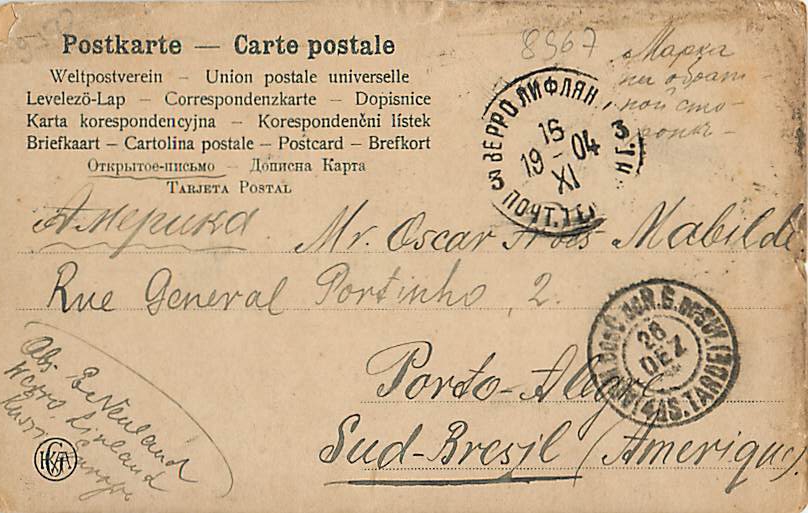 Postkarte — Carte postale
Weltpostverein – Union postale universelle
Levelezö-Lap – Correspondenzkarte – Dopisnice
Karta korespondencyjna – Korespondenčni lístek
Briefkaart – Cartolina postale – Postcard – Brefkort
Открытое-письмо – Дописна Карта
Tarjeta Postal
8967
Марка
на обрат-
ной сто-
роне
ВЕРРО ЛИФЛЯН
16
19 - 04
XI
3 ПОЧТ.
3
Америка.
Mr. Oscar Mabilde
Rue General Portinho, 2.
26
DEZ
TARDE
Porto-Alegre
Sud-Bresil (Amerique).
Abs. E. Neuland
Werro Livland
Europe